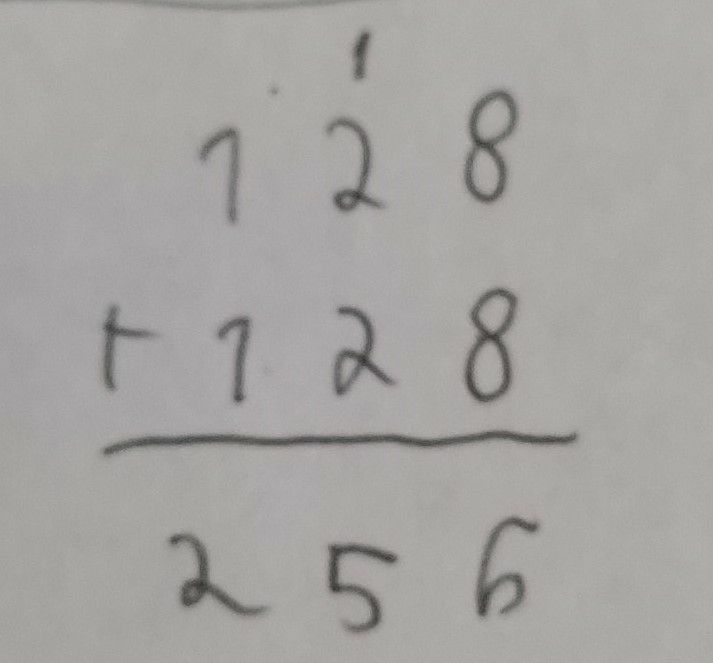 1
128
+128
256